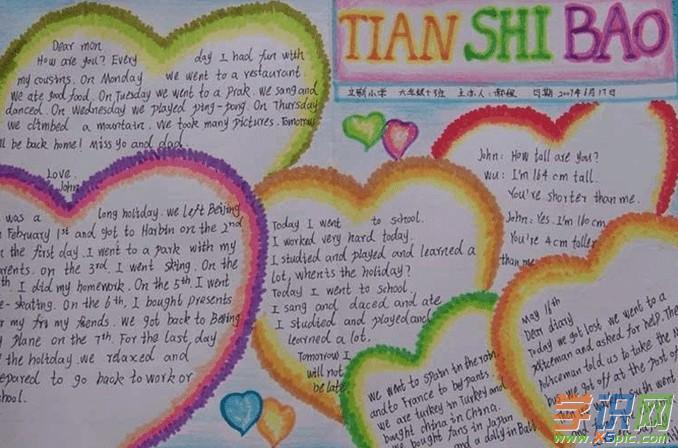 TIAN SHI BAO
Dear mon
How are you? Every day I had fun with
my cousins. On Monday we went to a restaurant.
We ate good food. On Tuesday we went to a Prak. We sang and
danced. On Wednesday we played ping-pong. On Thursday
we climbed a mountain. We took many pictures. Tomorrow
be back home! Miss yo and dad.
Love.
John
was a long holiday. we left Beijing
February 1st and got to Harbin on the 2nd
the first day. I went to a park with my
on the 3rd. I went sking. On the
I did my homework. On the 5th. I went
skating. On the 6th, I bought presents
my friends. we got back to Beijing
plane on the 7th. For the last day
the holtday. we relaxed and
to go back to work or
Today I went to school.
I worked very hard today.
I studied and played and learned a
lot, when's the holiday?
Today I went to school
I sang and daced and ate
I studied and played and
learned a lot.
Tomorrow I
will not
be late
John: How tall are you?
wu: I'm 164 cm tall.
You're shorter than me.
John: Yes. I'm 160 cm
You're 4 cm taller
than me.
we went to Spain in the rain
and to France to buy pants
we are turkey in Turkey and
bought china in China.
we bought fans in Japan
and a
May 16th
Dear diary
Today we got lost. we went to a
policeman and asked for help. The
policeman told us to take the
we got off at the
south went
学识网
www.xspic.com